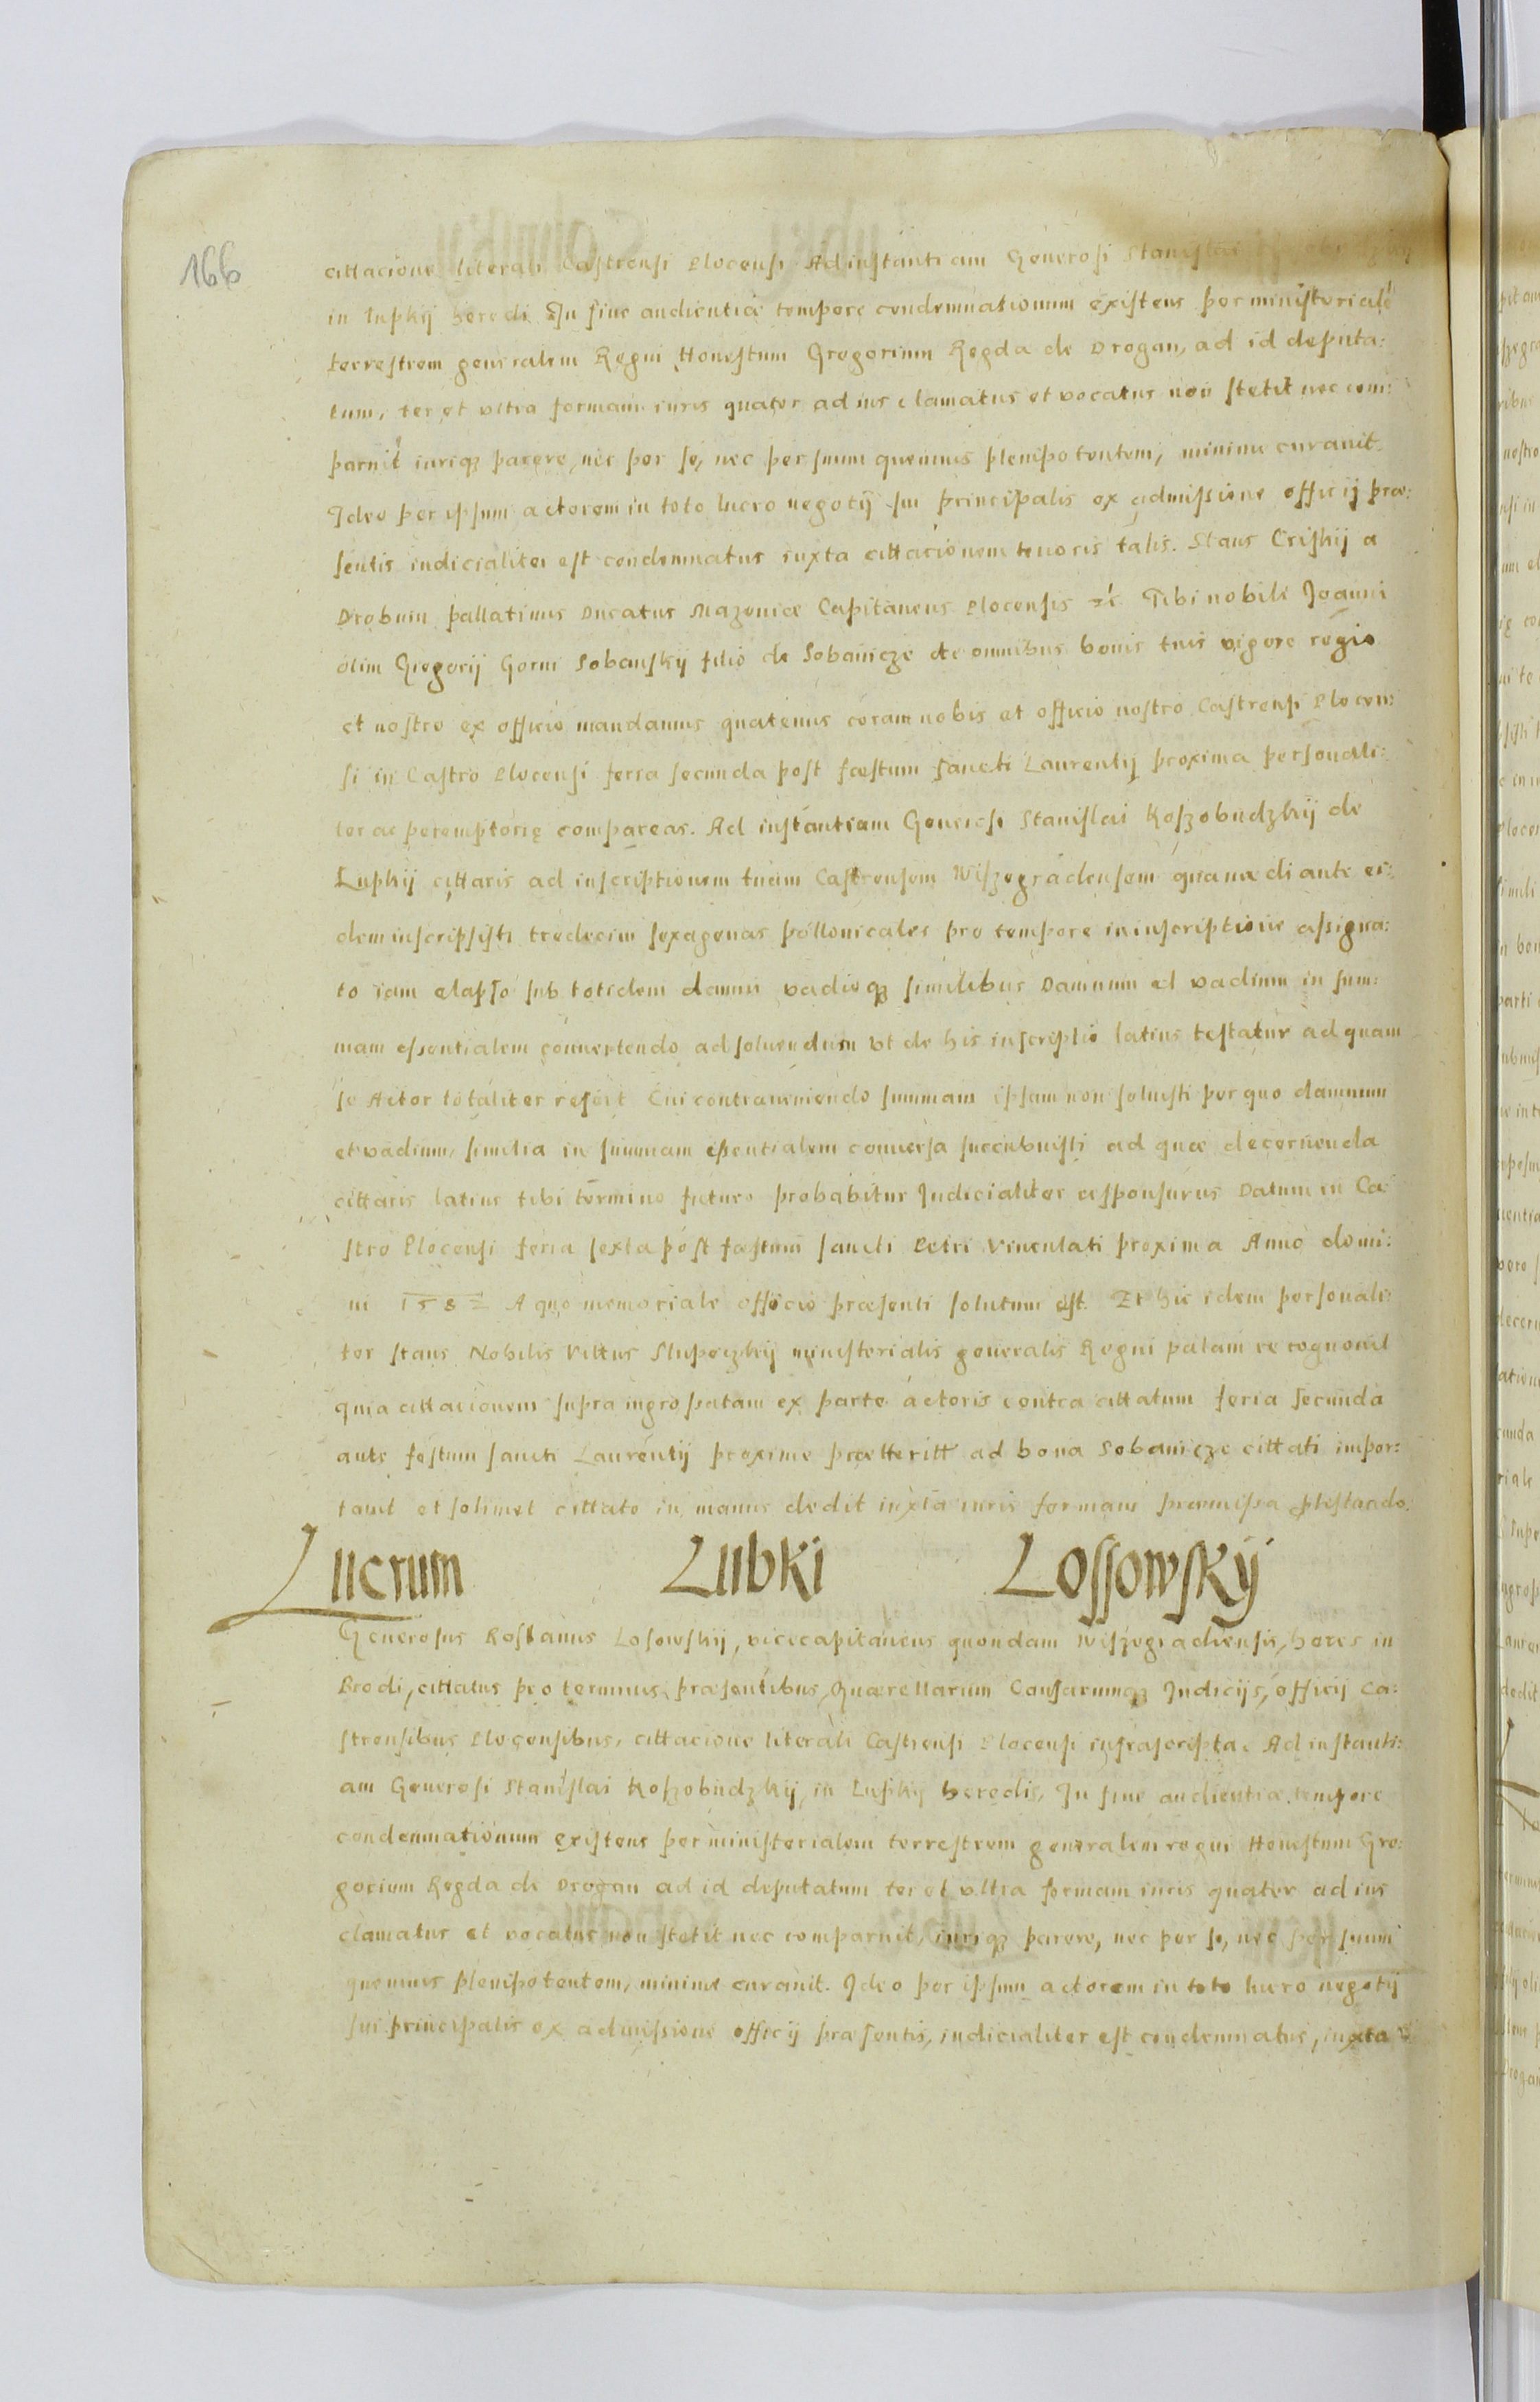 166
cittacione literali Castrensi Plocensi Ad instantiam Generosi Stanislai
in Lupkij heredi In fine audientiæ tempore condemnationum existens per ministerialē
terrestrem generalem Regni Honestum Gregorium Regda de Drogan, ad id deputa:
tum, ter et vltra formam iuris quater ad ius clamatus et vocatus non stetit nec com:
paruit iuriqȝ parere, nec per se, nec per suum quemuis plenipotentem, minime curauit
Ideo per ipsum actorem in toto lucro negotij sui principalis ex admissione officij præ:
sentis iudicialiter est condemnatus iuxta cittacionem tenoris talis. Stans Criskij a
Drobnin pallatinus Ducatus Mazouiæ Capitaneus Plocensis ꝛc̃ Tibi nobili Joanni
olim Gregorij Gorni Sobansky filio de Sobanicze de omnibus bonis tuis vigore regio
et nostro ex officio mandamus quatenus coram nobis et officio nostro Castrensi Plocen:
si in Castro Plocensi feria secunda post fæstum sancti Laurentij proxima personali:
ter ac peremptorię compareas. Ad instantiam Generosi Stanislai Koszobudzkij de
Lupkij cittaris ad inscriptionem tuam Castrensem Wiszegradensem qua mædiante ei:
dem inscripsisti tredecim sexagenas pollonicales pro tempore in inscriptione assigna:
to iam elapso sub totidem damni vadioqȝ similibus Damnum et vadium in sum:
mam essentialem conuertendo ad soluendum vt de his inscriptio latius testatur ad quam
se Actor totaliter refert Cui contraueniendo summam ipsam non soluisti per quo damnum
et vadium, similia in summam essentialem conuersa succubuisti ad quæ decernenda
cittaris latius tibi termino futuro probabitur Judicialiter responsurus Datum in Ca:
stro Plocensi feria sexta post fæstum sancti Petri Vinculati proxima Anno domi:
ni 1582 A quo memoriale officio præsenti solutum est. Et hic idem personali:
ter stans Nobilis Vittus Slupeczkij ministerialis generalis Regni palam recognouit
quia cittacionem supra ingrossatam ex parte actoris contra cittatum feria secunda
ante festum sancti Laurentij proxime prætteritt ad bona Sobanicze cittati impor:
tauit et solimet cittato in manus dedit iuxta iuris formam præmissa ꝓtestando.
Lucrum Lubki Lossowskij
Generosus Rostanus Losowskij, vicecapitaneus quondam Wiszegradiensis, heres in
Brodi, cittatus pro terminis præsentibus, Quærellarum Causarumqȝ Judicijs, officij Ca:
strensibus Plocensibus, cittacione literali Castrensi Plocensi infrascripta. Ad instanti:
am Generosi Stanislai Koszobudzkij, in Lupkij heredis, In fine audientiæ, tempore
condemnationum existens per ministerialem terrestrem generalem regni Honestum Gre:
gorium Regda de Drogan ad id deputatum ter et vltra formam iuris quater ad ius
clamatus et vocatus non stetit nec comparuit, iuriqȝ parere, nec per se, nec per suum
quemuis plenipotentem, minime curauit. Ideo per ipsum actorem in toto lucro negotij
sui principalis ex admissione officij præsentis, iudicialiter est condemnatus, iuxta